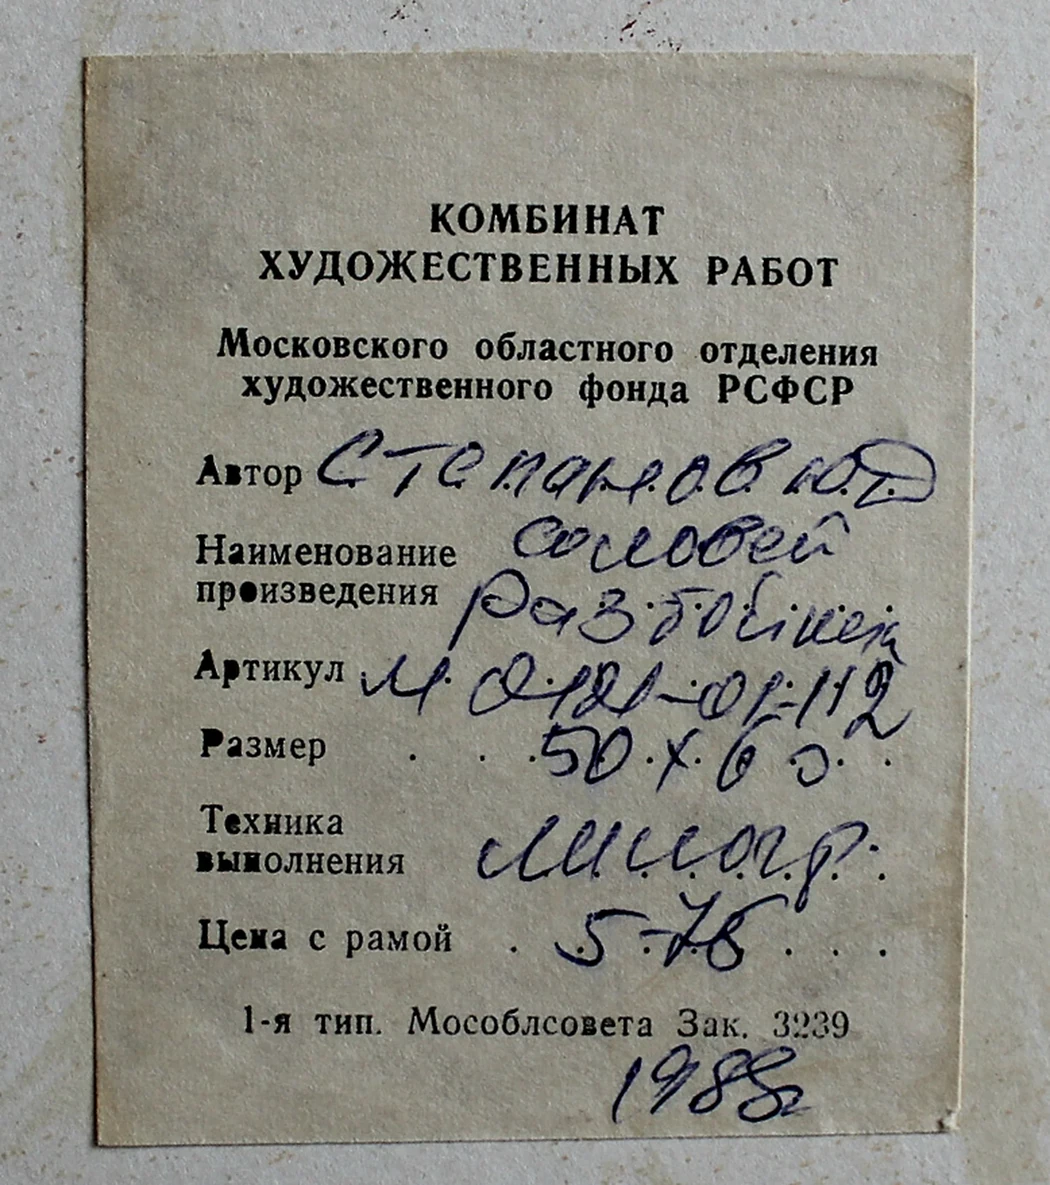 КОМБИНАТ
ХУДОЖЕСТВЕННЫХ РАБОТ
Московского областного отделения
художественного фонда РСФСР
Автор Степанов Ю.Д
Наименование Соловей
произведения Разбойник
Артикул М 0-121-01-112
Размер 50 х 60
Техника
выполнения линогр.
Цена с рамой 5-76
1-я тип. Мособлсовета Зак. 3239
1988г